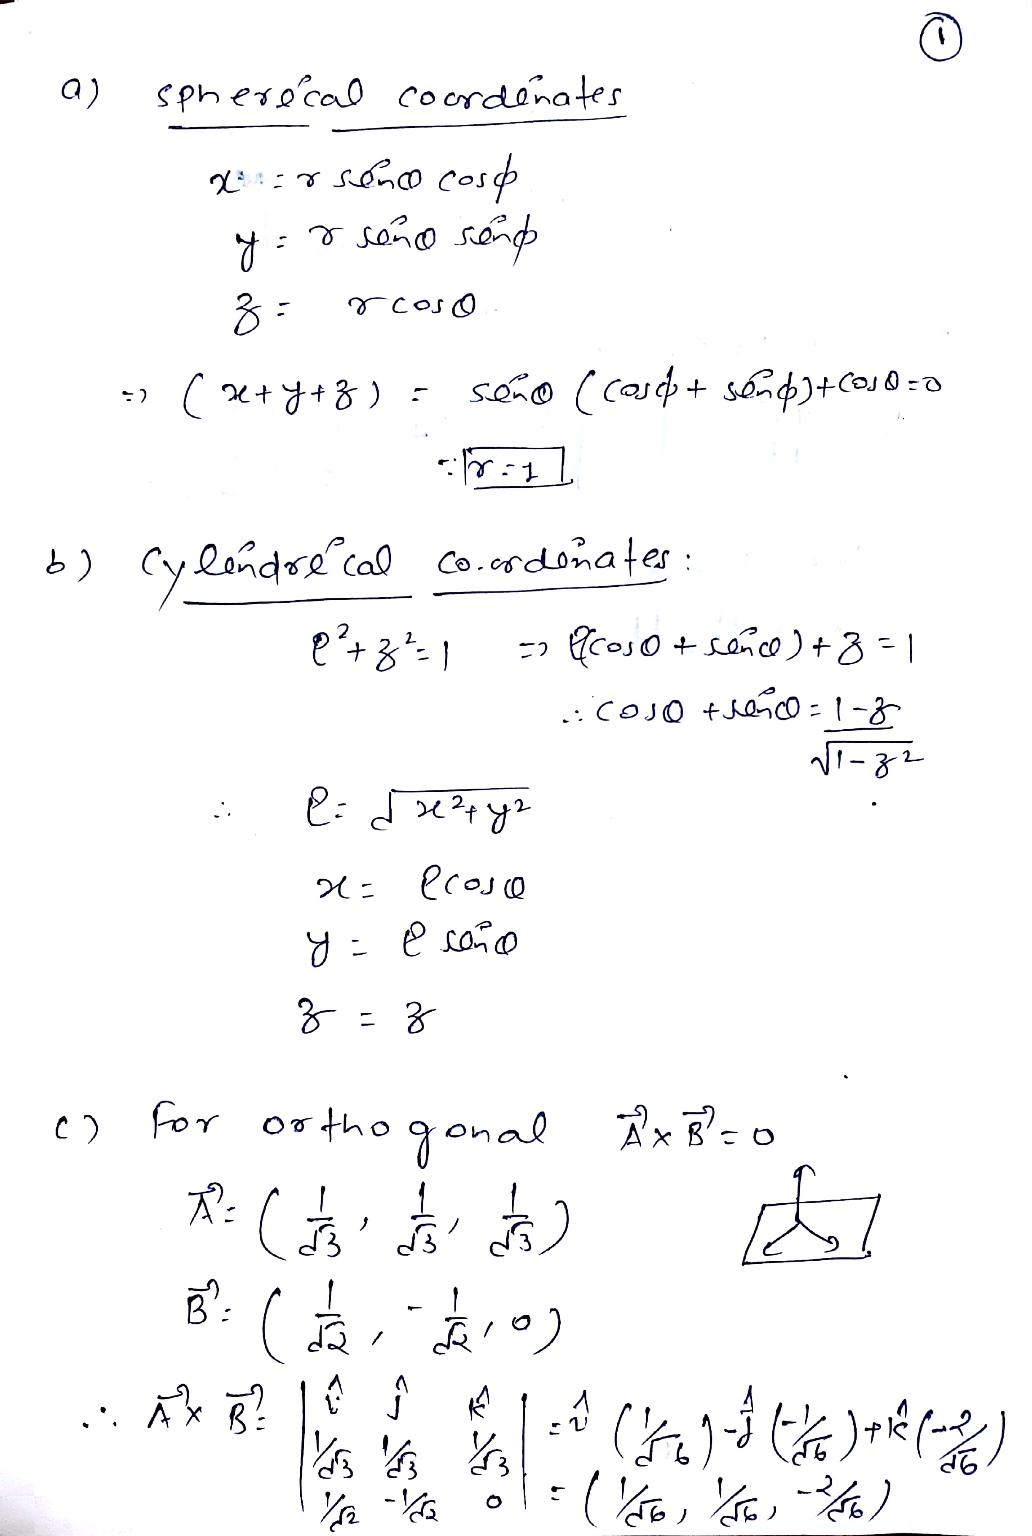 1
a) spherical coordinates
x = r sinθ cosφ
y = r sinθ sinφ
z = r cosθ
=> (x+y+z) = sinθ (cosφ + sinφ)+cosθ=0
∵ r=1
b) Cylindrical co.ordinates:
ρ²+z²=1 => ρ(cosθ + sinθ)+z=1
∴ cosθ + sinθ = 1-z
√1-z²
∴ ρ = √x²+y²
x = ρcosθ
y = ρ sinθ
z = z
c) for orthogonal A⃗ x B⃗ = 0
A⃗ = (1/√3, 1/√3, 1/√3)
B⃗ = (1/√2, -1/√2, 0)
∴ A⃗ x B⃗ = | î ĵ k̂ | = î (1/√6) - ĵ (-1/√6) + k̂ (-2/√6)
1/√3 1/√3 1/√3
1/√2 -1/√2 0 = (1/√6, 1/√6, -2/√6)